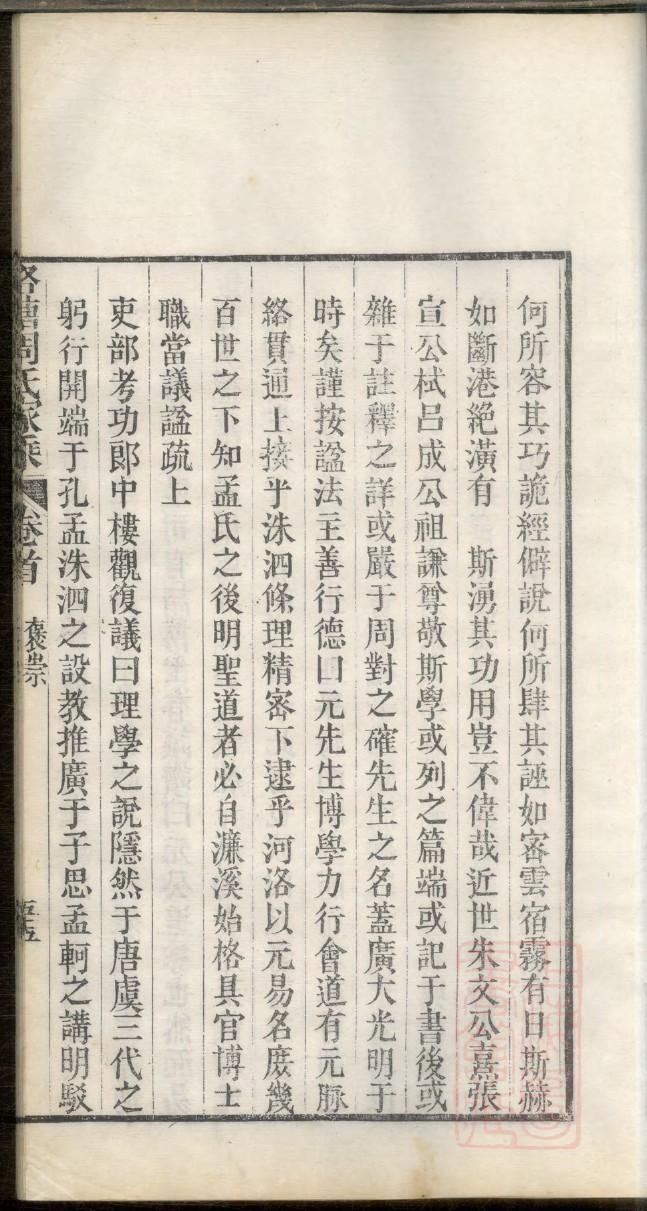 何所容其巧詭經僻說何所肆其誣如密雲宿霧有日斯赫
如斷港絶潢有　斯湧其功用豈不偉哉近世朱文公熹張
宣公栻呂成公祖謙尊敬斯學或列之篇端或記于書後或
雜于註釋之詳或嚴于周對之確先生之名蓋廣大光明于
時矣謹按謚法主善行德曰元先生博學力行會道有元脉
絡貫通上接乎洙泗條理精密下逮乎河洛以元易名庶幾
百世之下知孟氏之後明聖道者必自濂溪始格具官博士
職當議謚疏上
吏部考功郎中樓觀復議曰理學之說隱然于唐虞三代之
躬行開端于孔孟洙泗之設教推廣于子思孟軻之講明駁
周氏家乘
卷首
褒崇
五